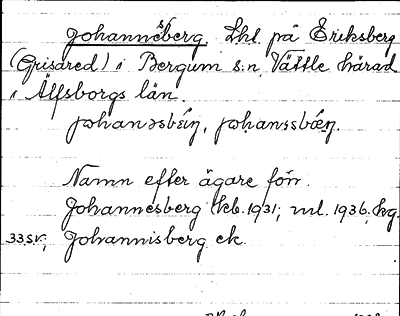 Johannesberg. Lht på Eriksberg
(Grisared) i Bergum s:n, Vättle härad
i Älfsborgs län.
johanəsbæ̀rj, johanːsbæ̀rj.
Namn efter ägare förr.
Johannesberg kb. 1931; ml. 1936, hg.
33 s.v.; Johannisberg ek.